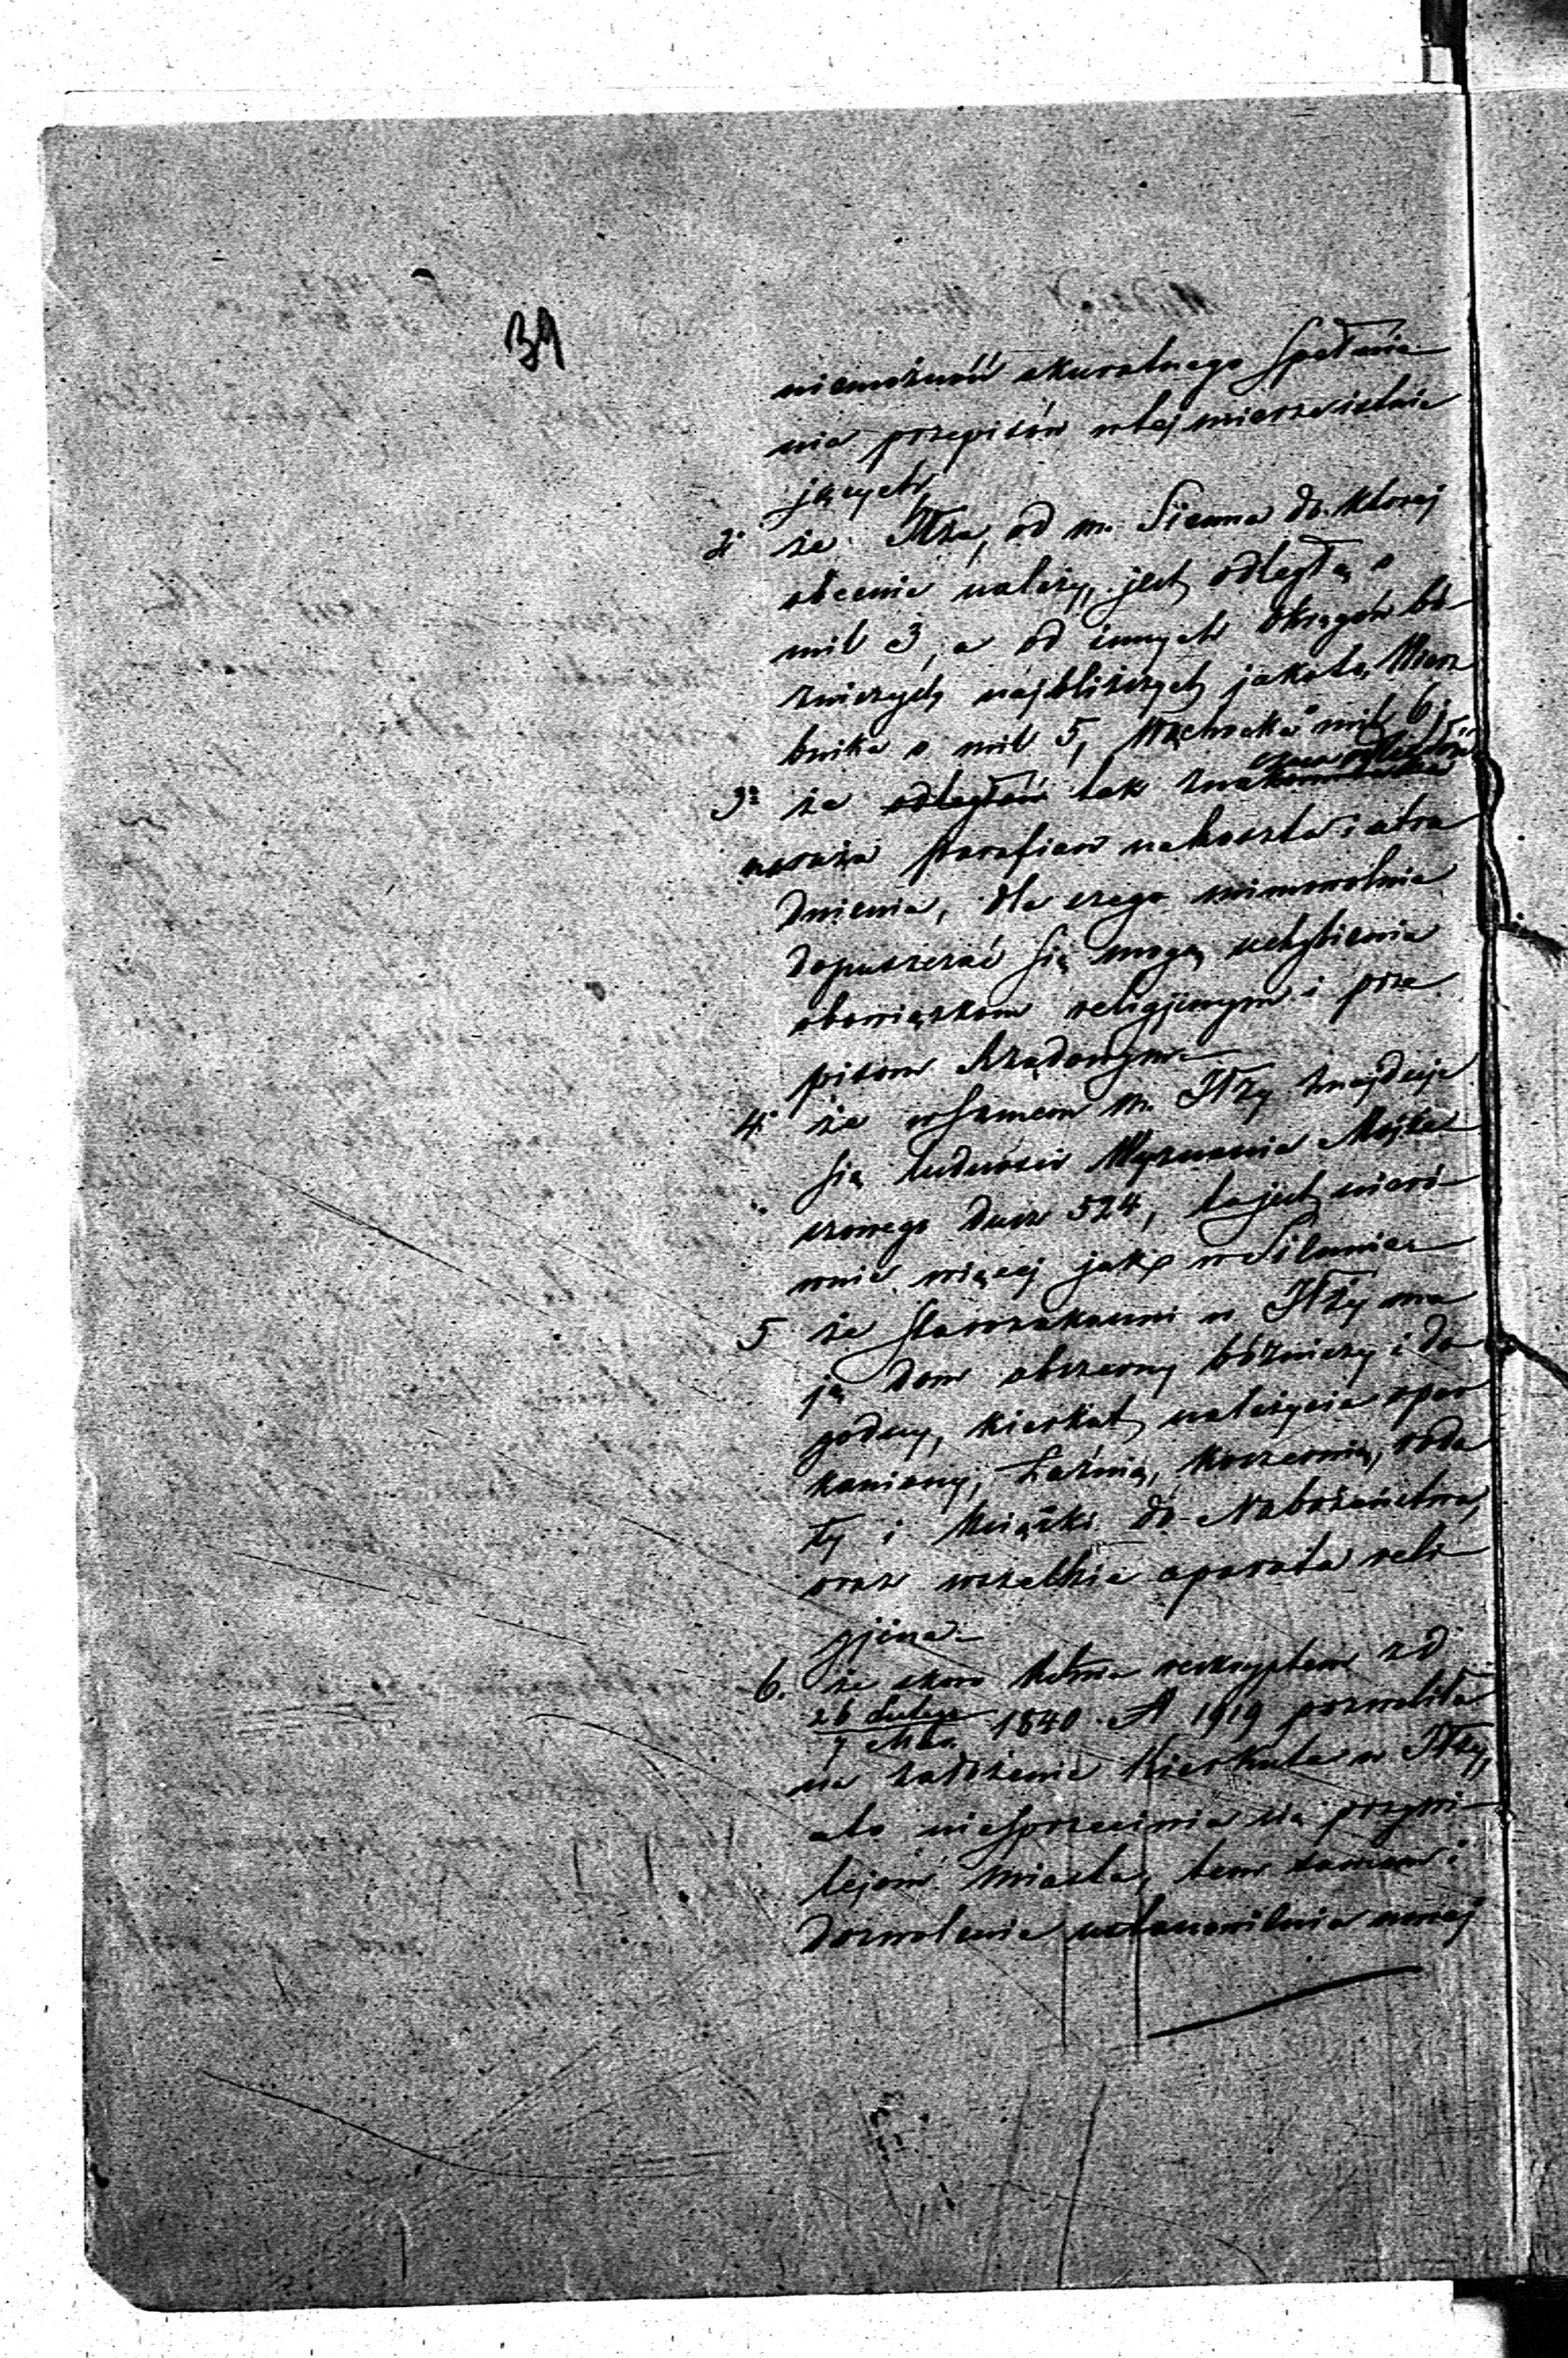 39
niemożność akuratnego spełnie
nia przepisów w tej mierze istnie
jących
2° że Iłża, od m. Sienna do której
obecnie należy, jest odległą o
mil 3, a od innych Okręgów bó
żniczych najbliższych jakoto, Wierz
bnika o mil 5, Wąchocka o mil 6;
3° że odległość tak zna
naraża parafian na koszta i utru
dnienia, dla czego mimowolnie
dopuszczać się mogą uchybienia
obowiązkom religijnym i prze
pisom Rządowym
4° że w samem m. Iłży znajduje
się ludności Wyznania Mojże
szowego dusz 524, to jest nieró
wnie więcej jak w Siennie
5 że starozakonni w Iłży ma
ją dom obszerny bóżniczy i do
godny, kierkut należycie opar
kaniony, Łaźnią, koszernią, roda
ły i książki do Nabożeństwa,
oraz wszelkie aparata reli
gijne
6. że skoro reskryptem z d
26 Lutego
9 Mar. 1840 N 1919 pozwoliła
na założenie Kierkuta w Iłży,
a to niesprzeciwia się przywi
lejom miasta, tem samem i
dozwolenie nowej